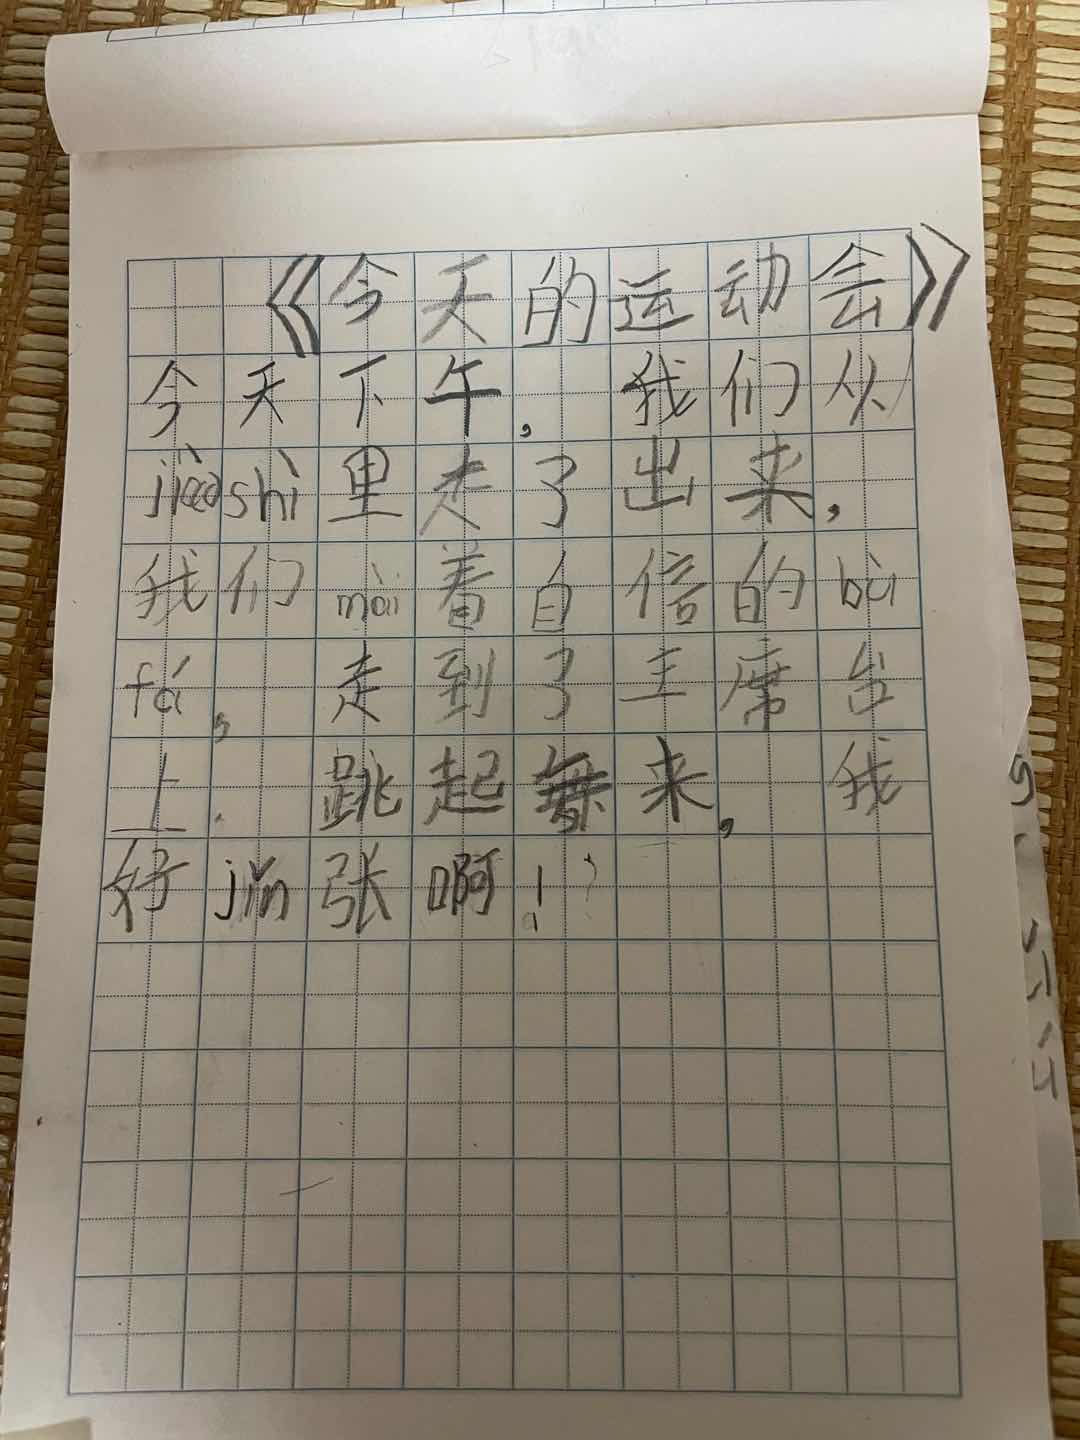 《今天的运动会》
今天下午，我们从
jiàoshì里走了出来，
我们mài着自信的bù
fá，走到了主席台
上．跳起舞来，我
好jǐn张啊！